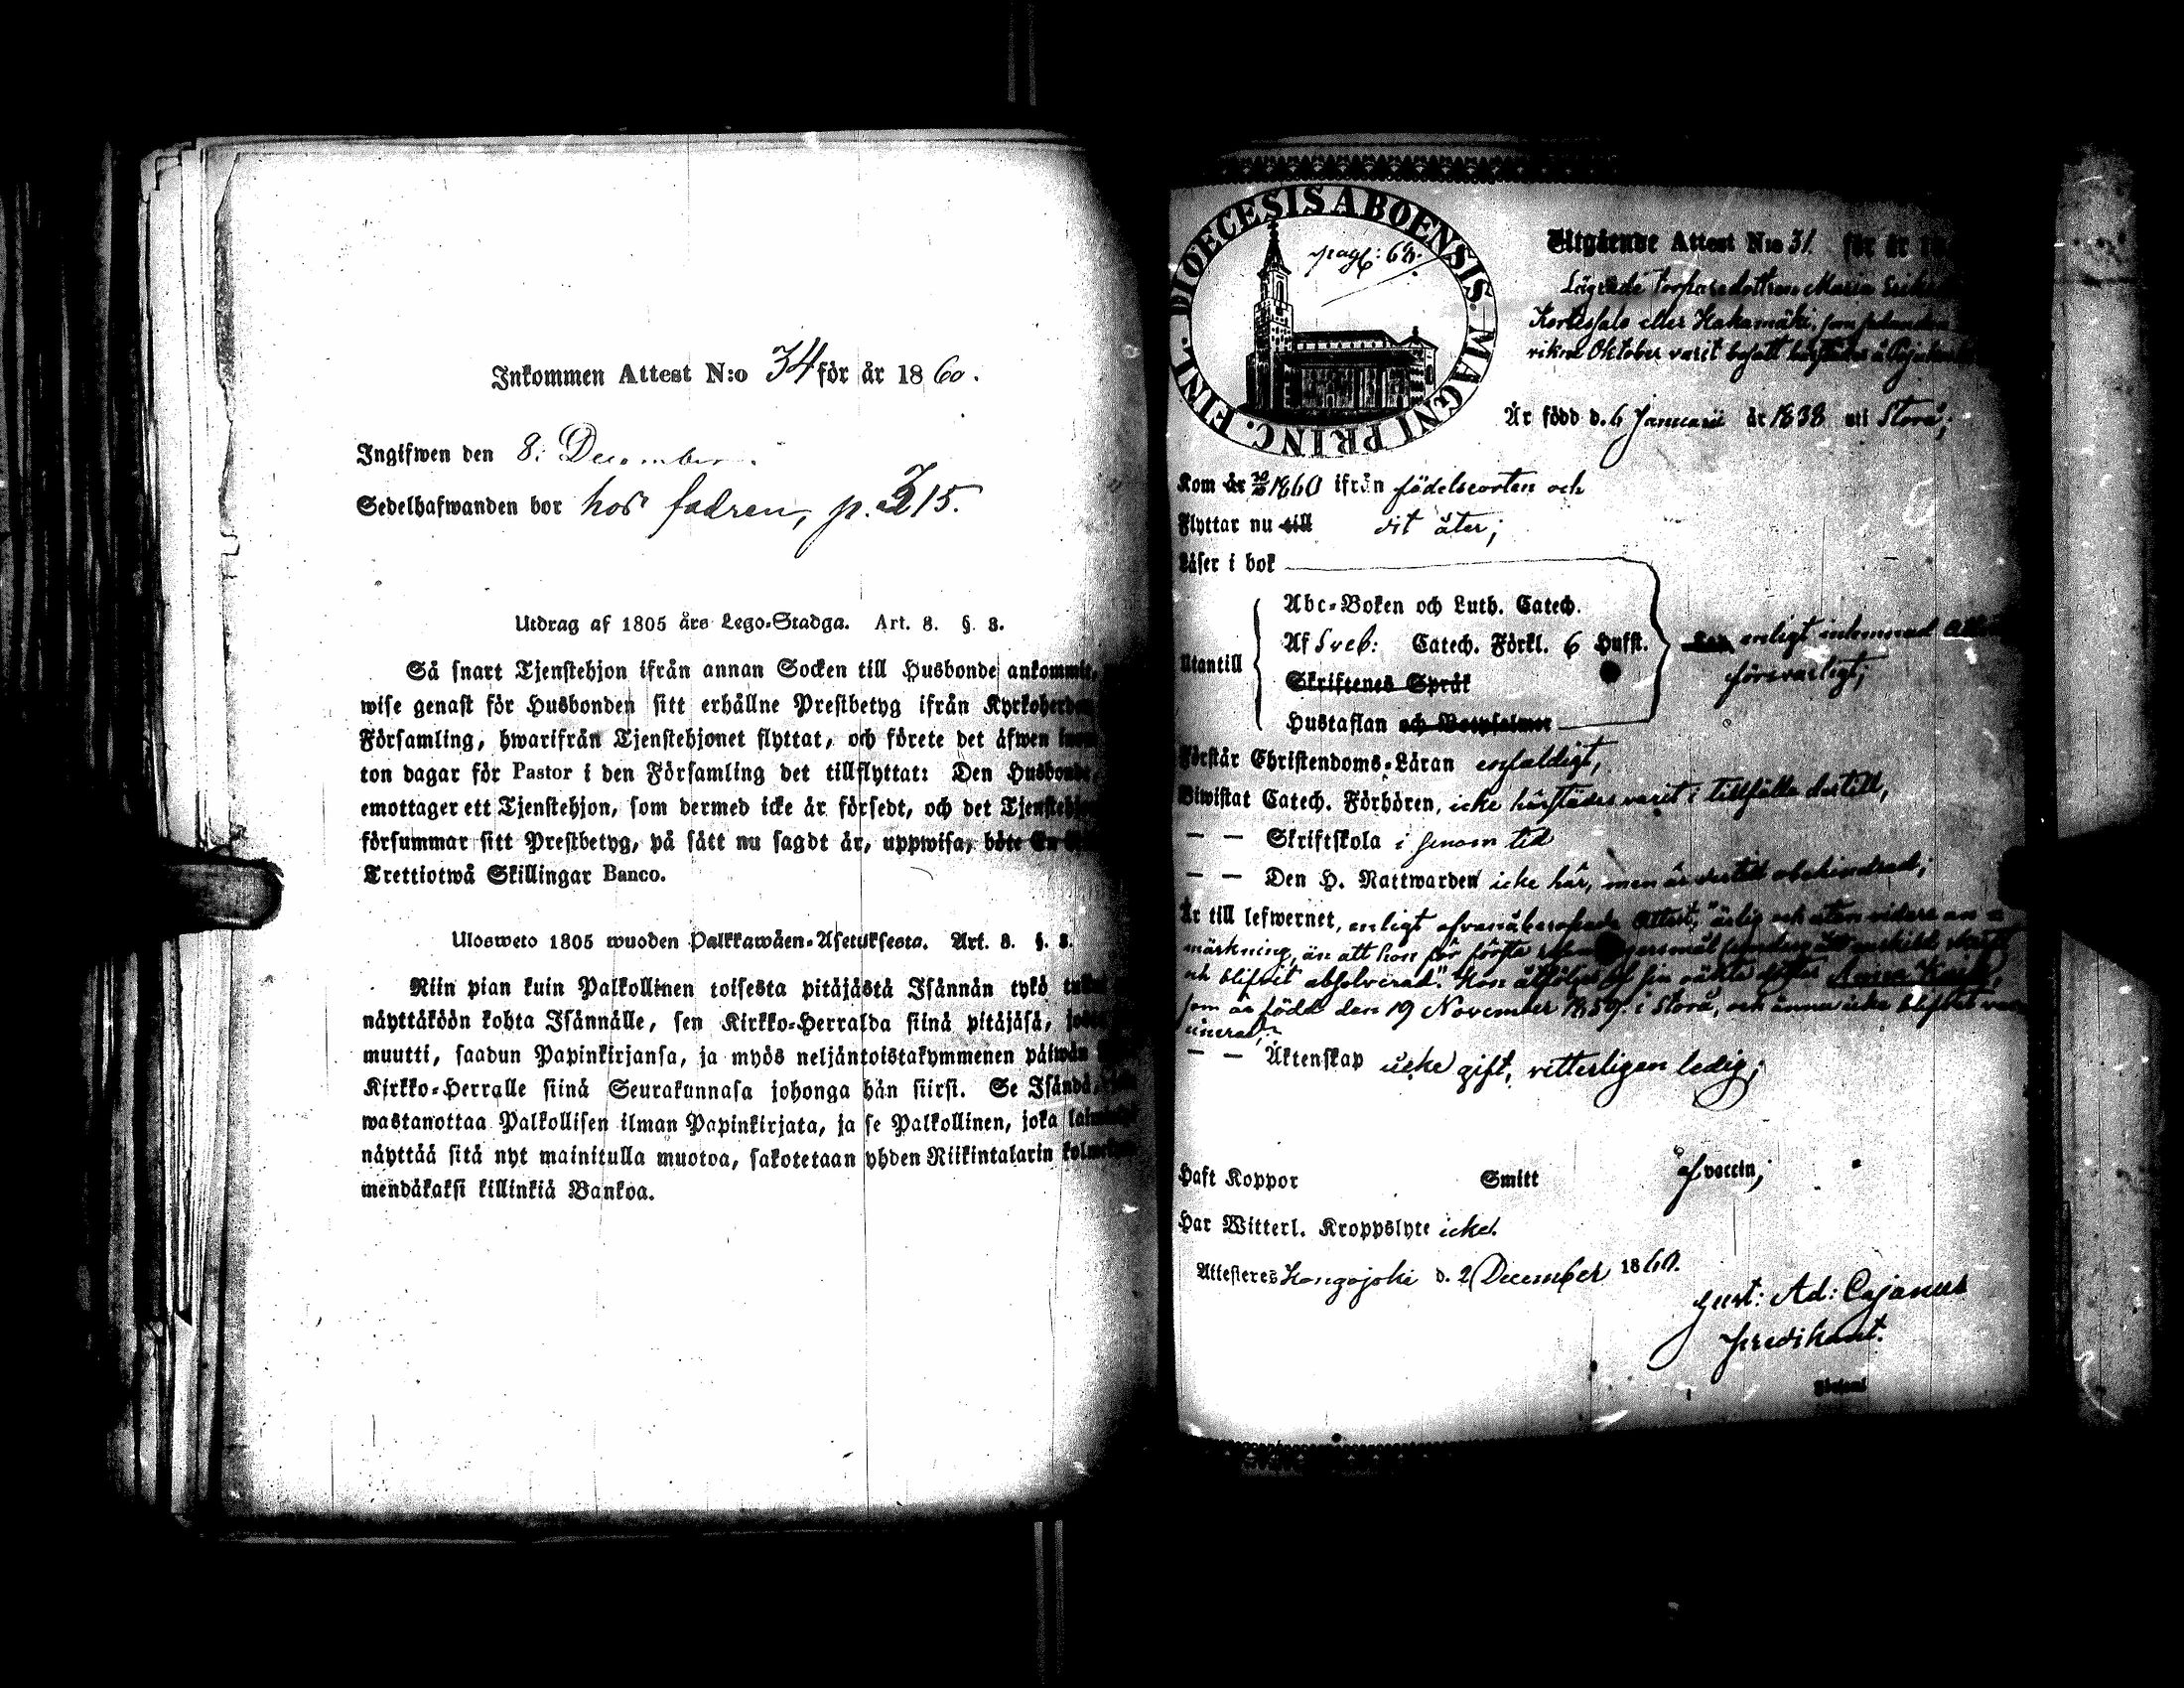 Inkommen Attest N:o 34 för år 1860.
Ingifwen den 8: December.
Sedelhafwanden bor hos fadren, p. 315.
Utdrag af 1805 års Lego-Stadga. Art. 8. §. 3.
Så snart Tjenstehjon ifrån annan Socken till Husbonde ankommit,
wise genast för Husbonden sitt erhållne Prestbetyg ifrån Kyrkoherden
Församling, hwarifrån Tjenstehjonet flyttat, och förete det äfwen
ton dagar för Pastor i den Församling det tillflyttat: Den Husbonde,
emottager ett Tjenstehjon, som dermed icke är försedt, och det
försummar sitt Prestbetyg, på sätt nu sagdt är, uppwisa, böte En
Trettiotwå Skillingar Banco.
Ulosweto 1805 wuoden Palkkawäen-Asetuksesta. Art. 8. §. 3.
Niin pian kuin Palkollinen toisesta pitäjästä Isännän tykö
näyttäköön kohta Isännälle, sen Kirkko-Herralda siinä pitäjäsä,
muutti, saadun Papinkirjansa, ja myös neljäntoistakymmenen päiwän
Kirkko-Herralle siinä Seurakunnasa johonga hän siirsi. Se Isändä,
wastanottaa Palkollisen ilman Papinkirjata, ja se Palkollinen, joka
näyttää sitä nyt mainitulla muotoa, sakotetaan yhden Riikintalarin
mendäkaksi killinkiä Bankoa.
DIOECESIS ABOENSIS. MAGNI PRINC. FINL.
pag: 68.
Utgående Attest N:o 31. för år
Lägrade Torparedottren Maria
Kortessalo eller Hakamäki, som sedan den
Oktober varit bosatt härstädes å
Är född d. 6 Januarii år 1838 uti Storå;
Kom år 1860 ifrån födelseorten och
Flyttar nu till dit åter;
Läser i bok
Abc-Boken och Luth. Catech.
Af Sveb: Catech. Förkl. 6 Hufst.
Utantill
enligt inlemnad
Skriftenes Språk
försvarligt;
Hustaflan och Botpsalmer
Förstår Christendoms-Läran enfaldigt,
Biwistat Catech. Förhören, icke härstädes varit i tillfälle dertill,
— — Skriftskola i senom tid
— — Den H. Nattwarden icke här, men är dertill obehindrad;
Är till lefwernet, enligt ofvanåberopade Attest, "ärlig och utan vidare an
märkning, än att hon för första enskildt skrift
och blifvit absolverad". Hon åtföljes af sin oäkta dotter Anna
som är född den 19 November 1859. i Storå, och ännu icke blifvit vac
cinerad;
— — Äktenskap icke gift, vitterligen ledig;
Haft Koppor Smitt af vaccin;
Har Witterl. Kroppslyte icke.
Attesteres Hongojoki d. 2 December 1860.
Gust: Ad: Cajanus
predikant.